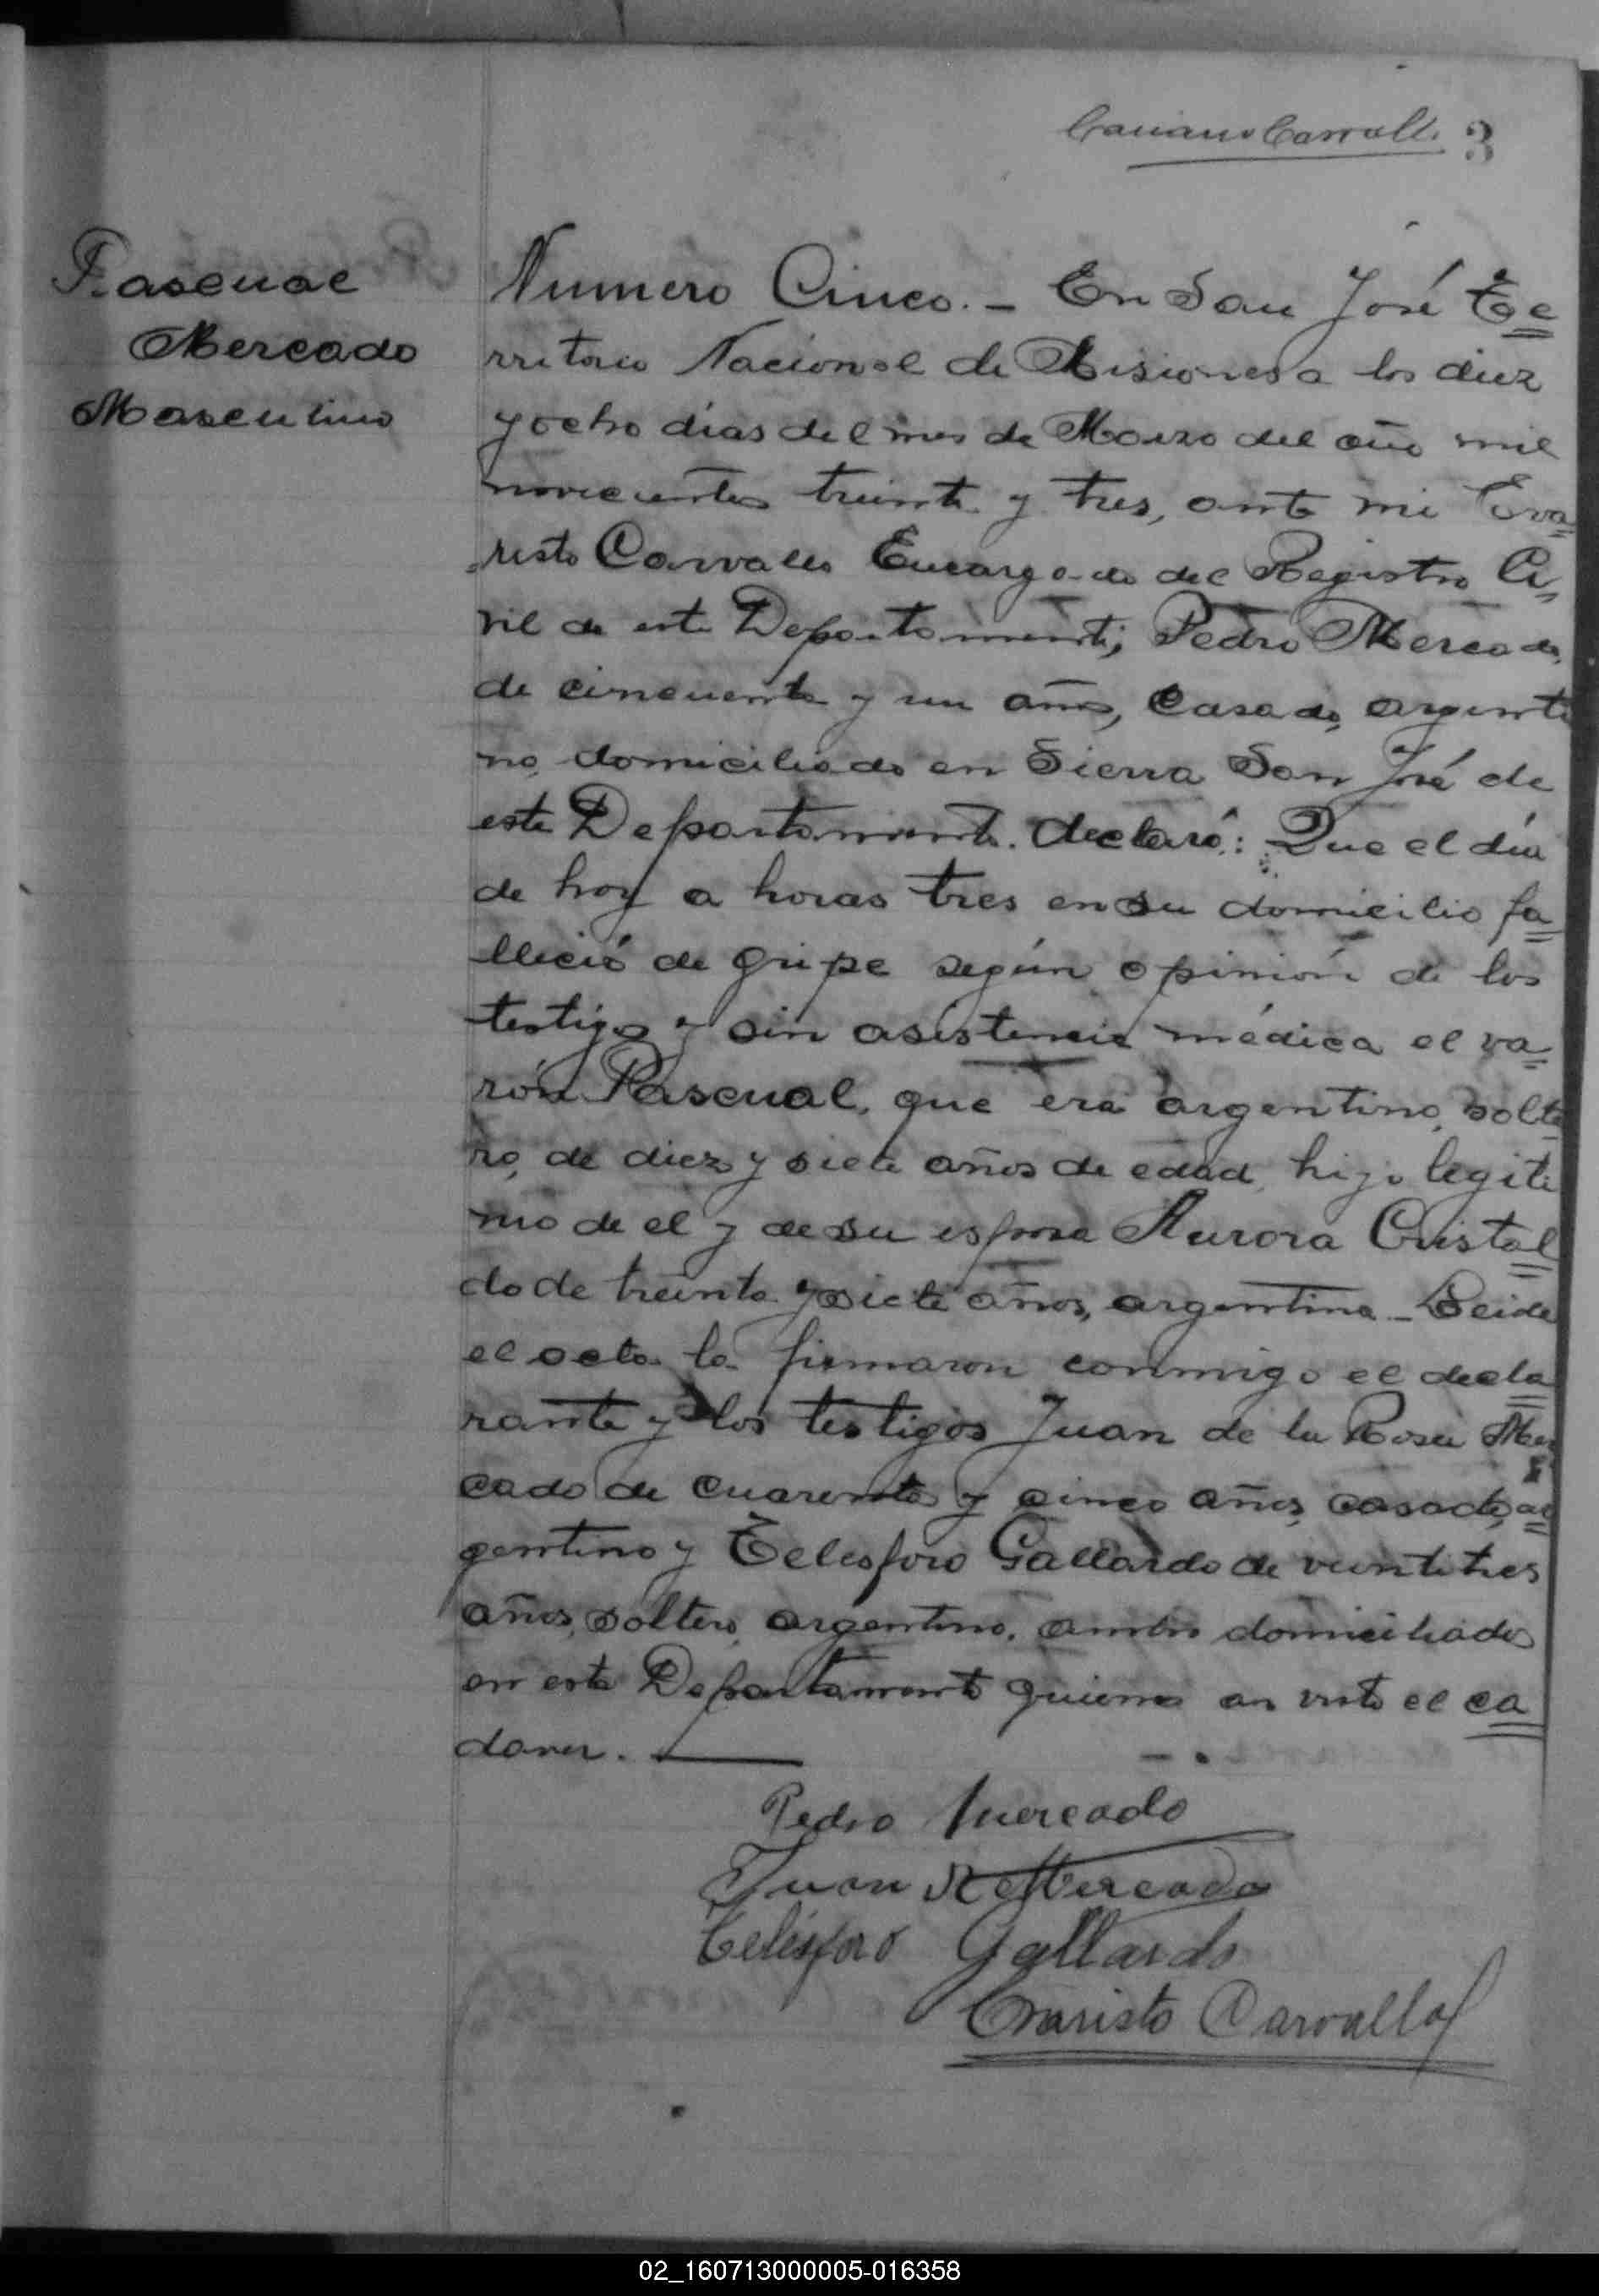 Carvall 3
Pascual
Mercado
Masculino
Numero Cinco. - En San José Te
rritorio Nacional de Misiones a los diez
y ocho días del mes de Marzo del año mil
novecientos treinta y tres, ante mi Eva
risto Carvallo Encargado del Registro Ci
vil de este Departamento, Pedro Mercado,
de cincuenta y un años, casado, argenti
no, domiciliado en Sierra San José de
este Departamento. declaró: Que el día
de hoy a horas tres en su domicilio fa
lleció de gripe según opinión de los
testigos y sin asistencia médica el va
rón Pascual, que era argentino, solte
ro, de diez y siete años de edad, hijo legiti
mo de el y de su esposa Aurora Cristal
do de treinta y siete años, argentina. - Leida
el acta la firmaron conmigo el decla
rante y los testigos Juan de la Rosa Mer
cado de cuarenta y cinco años, casado, ar
gentino y Telesforo Gallardo de veintitres
años, soltero, argentino, ambos domiciliados
en este Departamento quienes an visto el ca
daver.
Pedro Mercado
Juan R Mercado
Telésforo Gallardo
Evaristo Carvallo
02_160713000005-016358